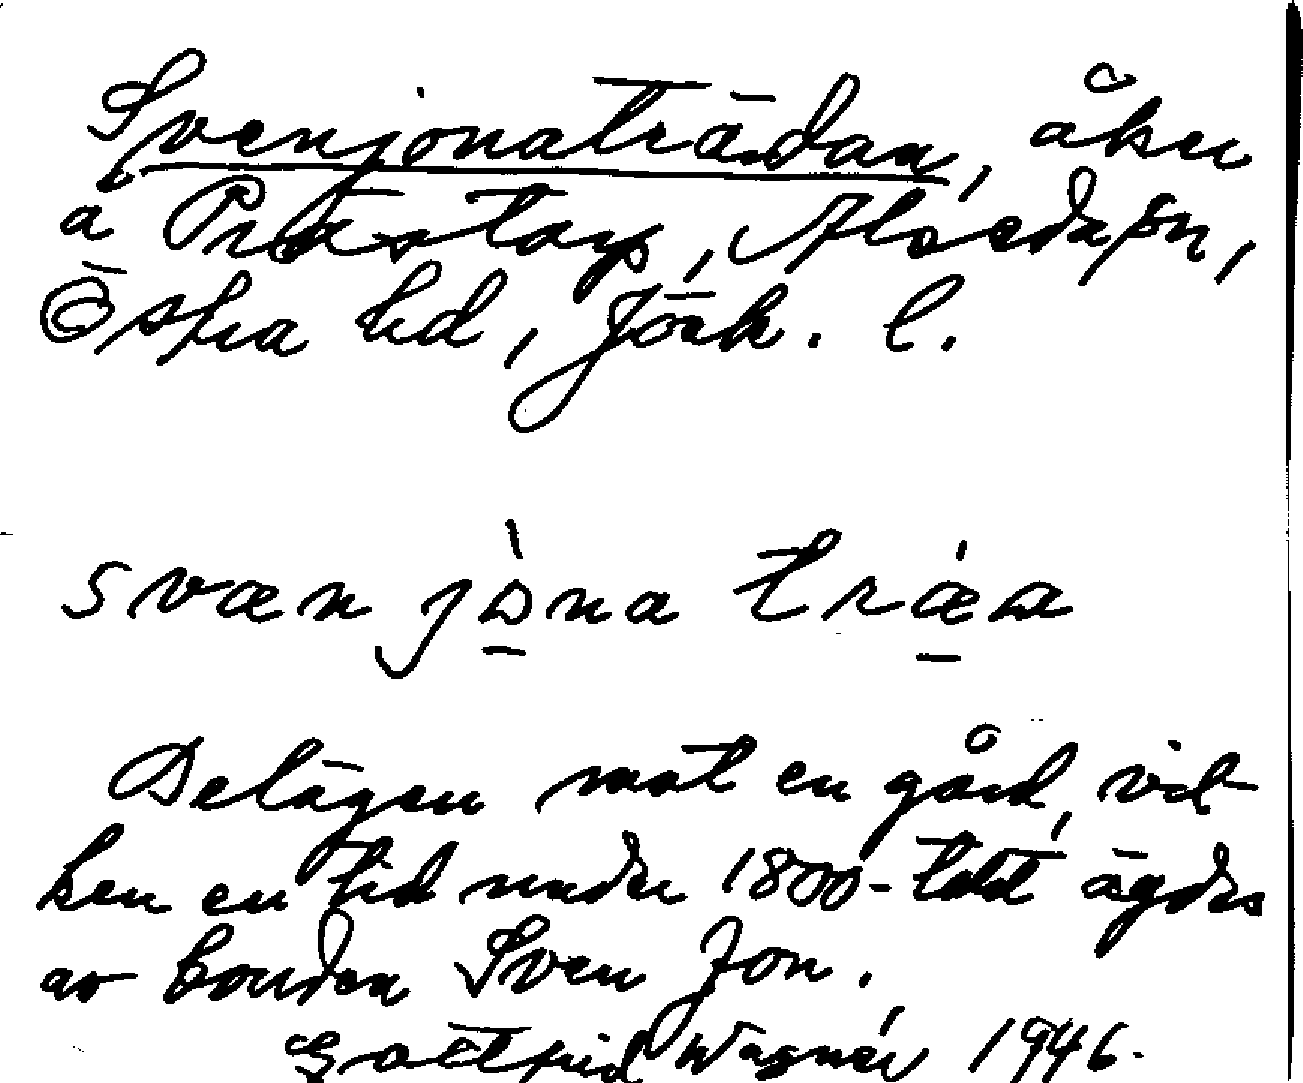 Svenjonaträdan, åker
å Prästorp, Alseda sn,
Östra hd, Jönk. l.
svæn jò̱na trǽ̱a
Belägen mot en gård, vil-
ken en tid under 1800-talet ägdes
av bonden Sven Jon.
Gottfrid Wagnér 1946.